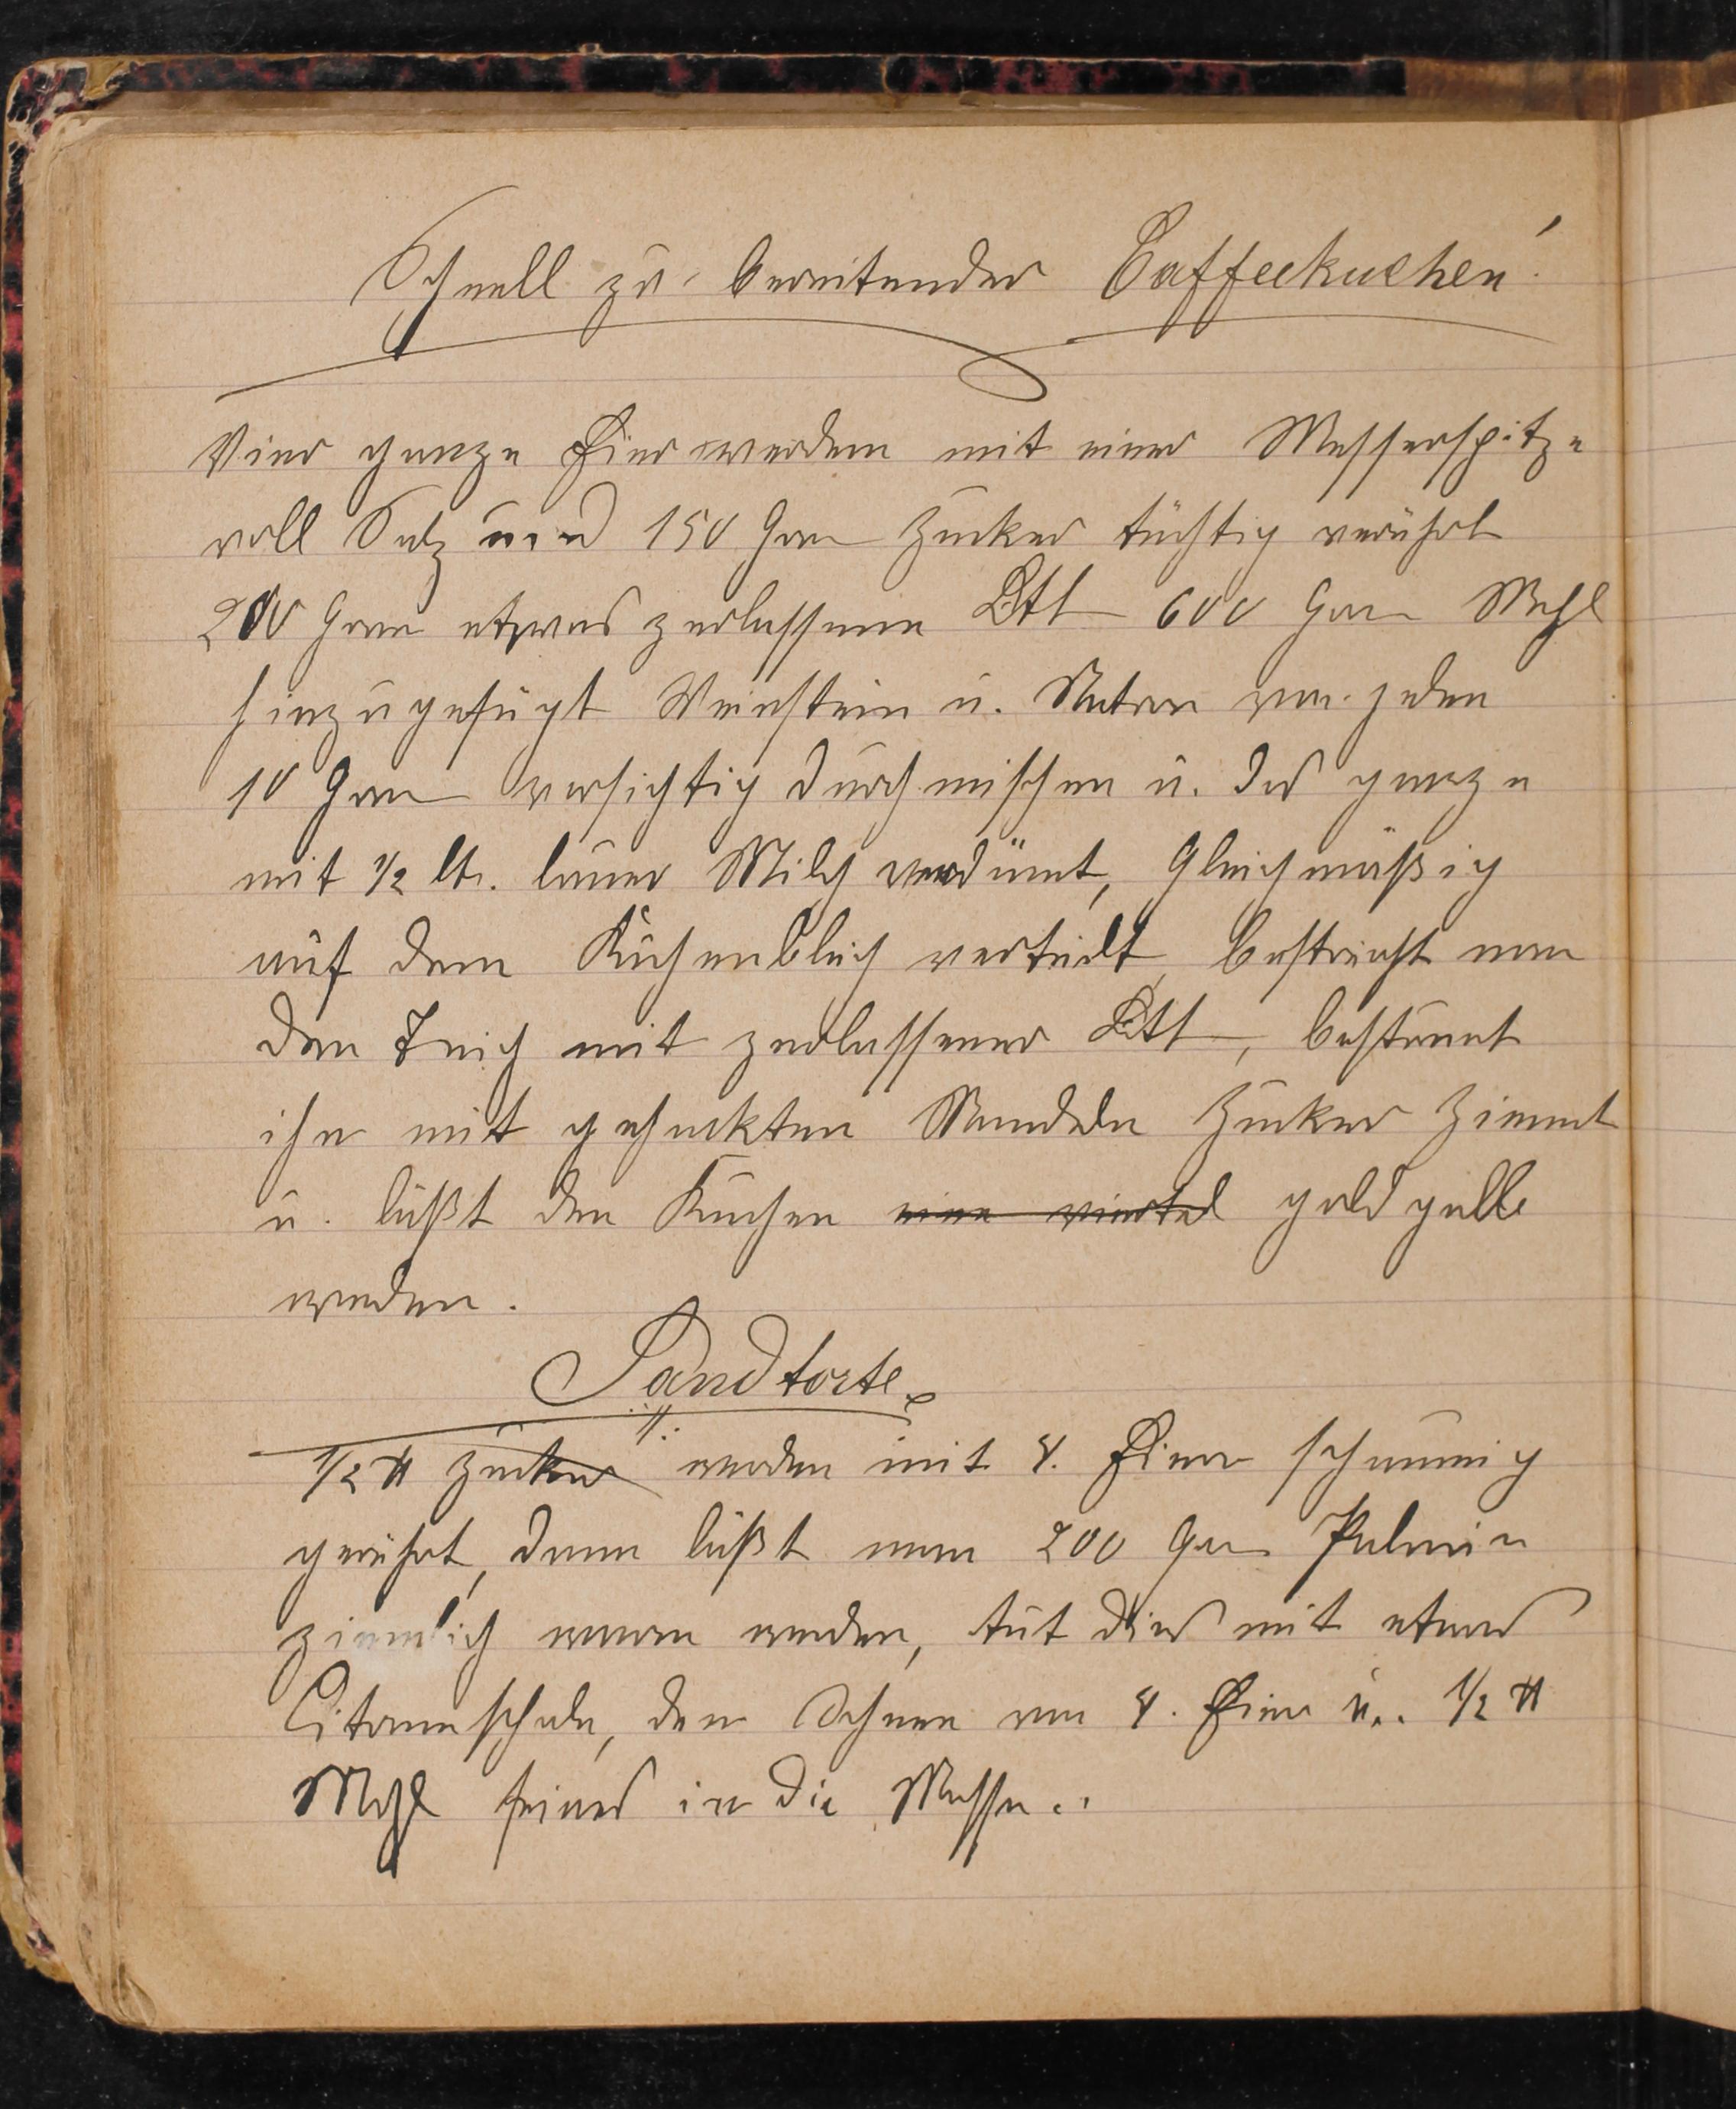 Schnell zu bereitender Caffeekuchen.
Vier ganze Eier werden mit einer Messerspitze
voll Salz und 150 Gram Zucker tüchtig verrührt
200 Gram etwas zerlassene Btt 600 Gram Mehl
hinzugefügt Weinstein u. Natron von jeden
10 Gram vorsichtig durchmischen u. das ganze
mit 1/2 ltr. lauer Milch verdünnt, Gleichmäßig
auf dem Kuchenblech verteilt, bestreicht man
den Teich mit zerlassener Btt, bestreut
ihn mit gehackten Mandeln Zucker Zimmt
u. läßt den Kuchen eine viertel goldgelb
werden.
Sandtorte.
1/2 ℔ Zucker werden mit 4. Eiern schaumig
gerührt, dann läßt man 200 Gram Palmin
ziemlich warm werden, tut dies mit etwas
Citronenschale, den Schnee von 4. Eier u. 1/2 ℔
Mehl feines in die Masse.